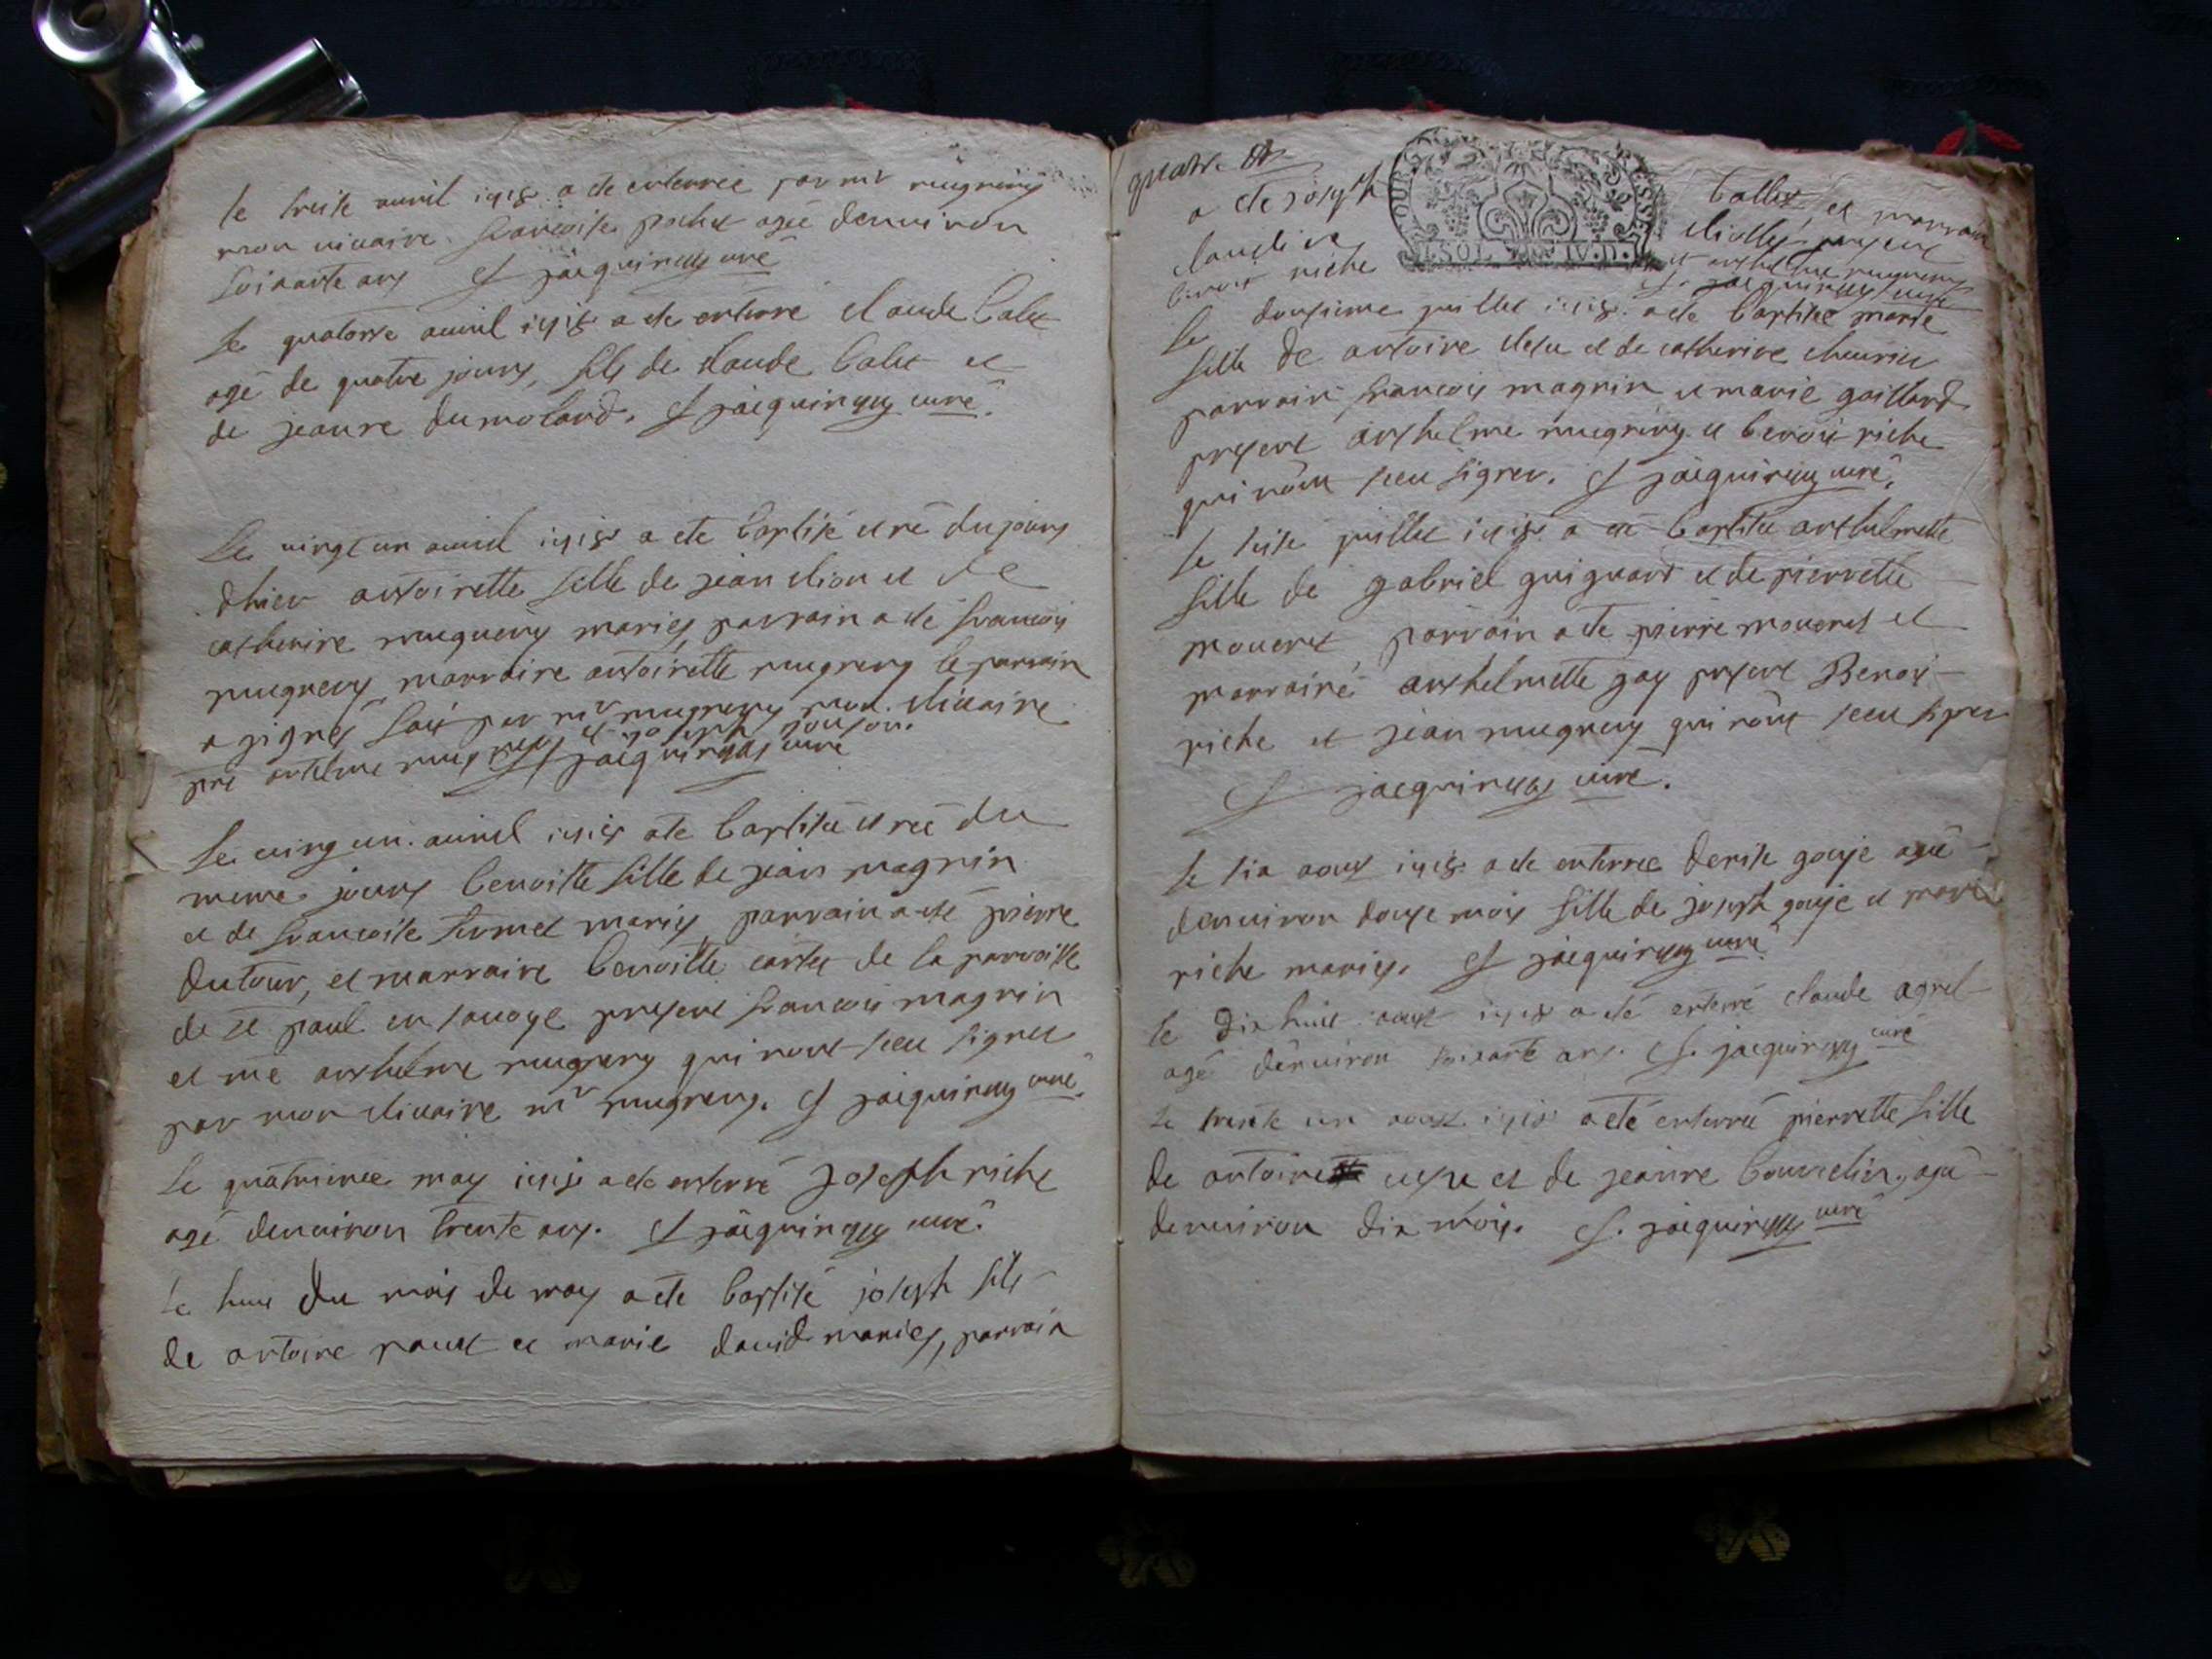 le treise avril 1718 a ete enterree par mr mugneriy
mon vicaire francoise pochet agée denviron
soixante ans J jacquinyy curé
le quatorse avril 1718 a ete enterré claude balet
agé de quatre jours, fils de claude balet et
de jeanne dumolard. J jacquinyy curé.
Le vingt un avril 1718 a ete baptisé et né du jours
dhier antoinette fille de jean et de
catherine mugnery mariés, parrain a ete francois
mugnery marraine antoinette mugneny le parrain
a signé fait par mr mugneny mon viccaire
pnt antelme et joseph J jacquinyy curé
Le ving un. avril 1718 a ete baptisée et née du
meme jours benoitte fille de jean magnin
et de francoise mariés, parrain a eté pierre
dutour, et marraine benoitte de la parroisse
de st paul en savoye present francois magnin
et me anthelme mugneny qui nont sceu signer
par mon viccaire mr mugneny. J jacquinyy curé.
Le quatrieme may 1718 a ete enterré joseph riche
agé denviron trente ans. J jacquinyy curé.
Le huit du mois de may a ete baptisé joseph fils
de antoine et marie david mariés, parrain
quatre d
a ete joseph ballet, et marraine
claudine present
benoit riche et anthelme mugneny
J. jacquinyy curé
Le dousieme juillet 1718. a ete baptisée marie
fille de antoine et de catherine
parrain francois magnin et marie gaillard
present anthelme mugneny et benoit riche
qui nont sceu signer. J jacquinyy curé.
le seise juillet 1718 a eté baptisée anthelmette
fille de gabriel guignard et de pierrette
moueret parrain a ete pierre moueret et
marraine anthelmette gay present Benoit
riche et jean mugneny qui nont sceu signer
J jacquinyy curé.
le six aoust 1718 a ete enterree denise gouje agée
denviron douse mois fille de joseph gouje et marie
riche mariés. J jacquinyy curé
le dix huit aoust 1718 a eté enterré claude agnel
agé denviron soixante ans. J. jacquinyy curé
Le trente un aoust 1718 a eté enterrée pierrette fille
de antoine et de jeanne agée
denviron dix mois. J. jacquinyy curé
SOL IV.D.